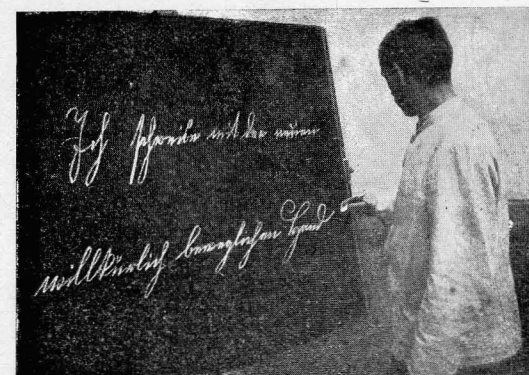 Ich schreibe mit der neuen
willkürlich beweglichen Hand